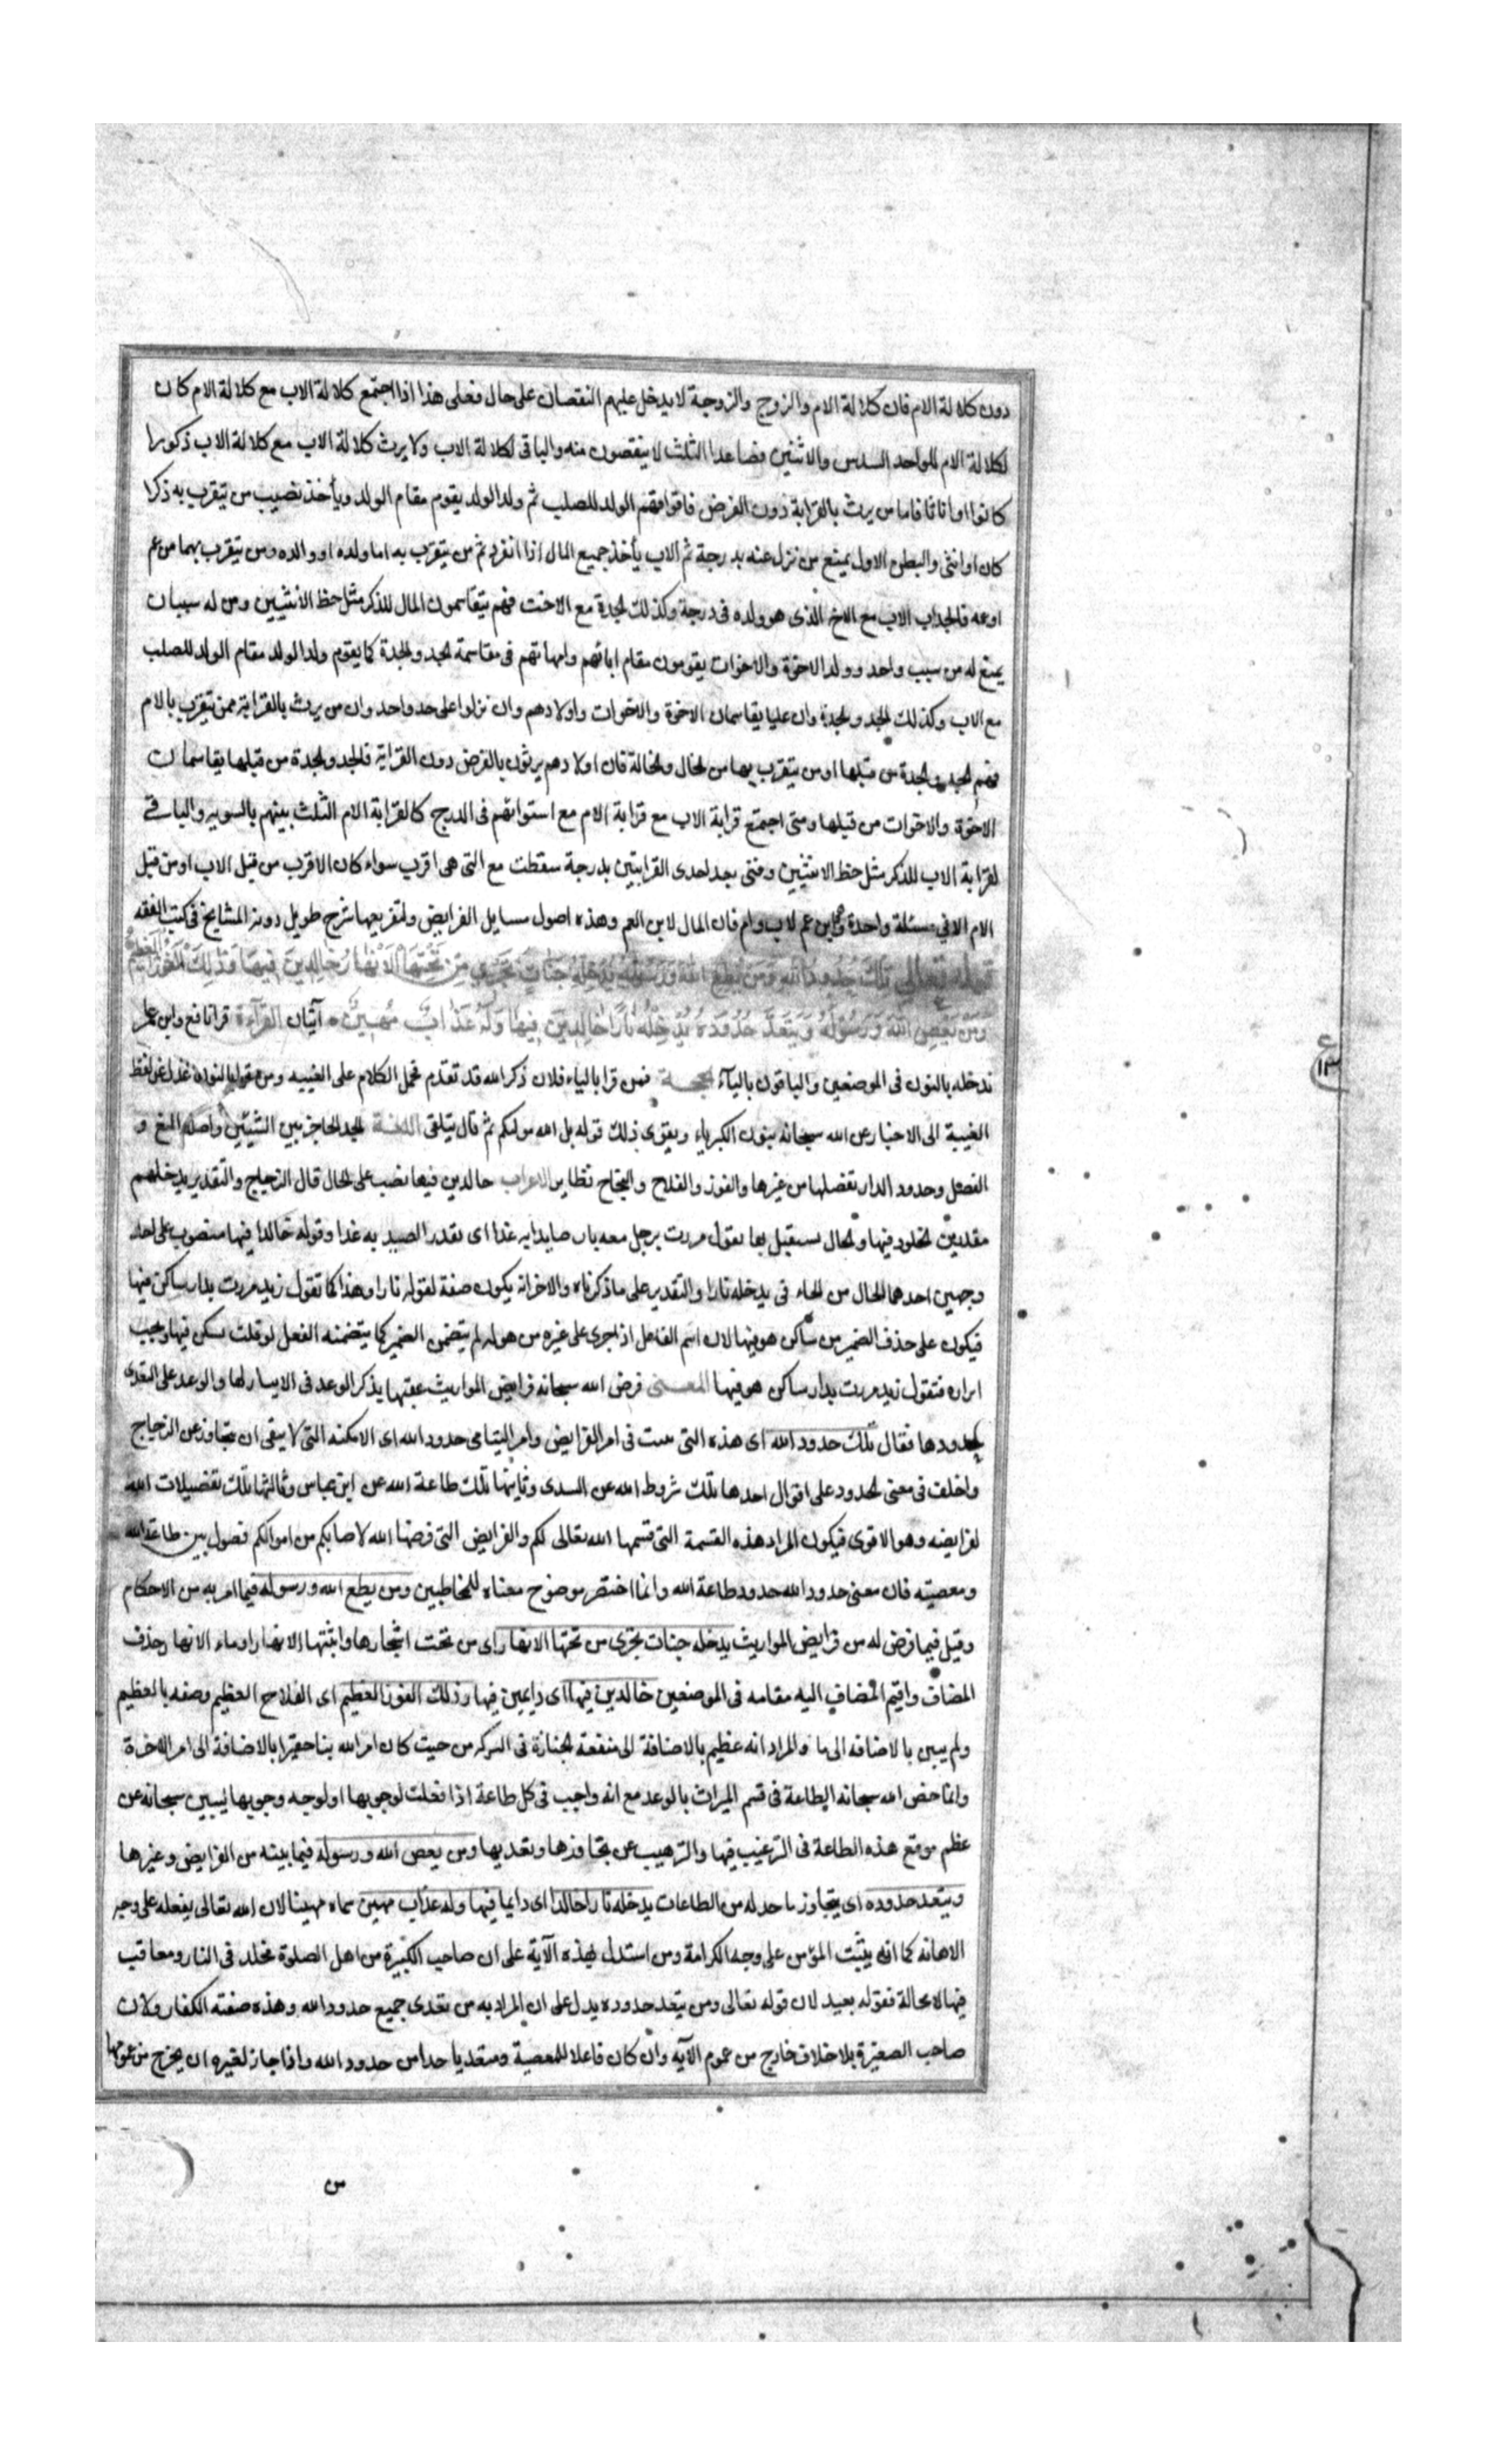 دون كلالة الام فان كلالة الام والزوج والزوجة لا يدخل عليهم النقصان على حال فعلى هذا اذا اجتمع كلالة الاب مع كلالة الام كان
لكلالة الام للواحد السدس والاثنين فصاعدا الثلث لا ينقصون منه والباقى لكلالة الاب ولا يرث كلالة الاب مع كلالة الاب ذكورا
كانوا او اناثا فاما من يرث بالقرابة دون الفرض فاقواهم الولد للصلب ثم ولد الولد يقوم مقام الولد ويأخذ نصيب من يتقرب به ذكرا
كان او انثى والبطن الاول يمنع من نزل عنه بدرجة ثم الاب يأخذ جميع المال اذا انفرد ثم من يتقرب به اما ولده او والده ومن يتقرب بهما من عم
او عمة فالجد اب الاب مع الاخ الذى هو ولده فى درجة وكذلك الجدة مع الاخت فهم يتقاسمون المال للذكر مثل حظ الانثيين ومن له سببان
يمنع له من سبب واحد وولد الاخوة والاخوات يقومون مقام ابائهم وامهاتهم فى مقاسمة الجد والجدة كما يقوم ولد الولد مقام الولد للصلب
مع الاب وكذلك الجد والجدة وان عليا يقاسمان الاخوة والاخوات واولادهم وان نزلوا على حد واحد وان من يرث بالقرابة ممن يتقرب بالام
فهم الجد والجدة من قبلها او من يتقرب بهما من الخال والخالة فان اولادهم يرثون بالفرض دون القرابة فالجد والجدة من قبلها يقاسمان
الاخوة والاخوات من قبلها ومتى اجتمع قرابة الاب مع قرابة الام مع استوائهم فى الدرج كا لقرابة الام الثلث بينهم بالسوية والباقى
لقرابة الاب للذكر مثل حظ الانثيين ومتى بعد احدى القرابتين بدرجة سقطت مع التى هى اقرب سواء كان الاقرب من قبل الاب او من قبل
الام الا فى مسئلة واحدة وهى ابن عم لاب وام فان المال لابن العم وهذه اصول مسايل الفرايض ولتفريعها شرح طويل دونه المشايخ فى كتب الفقه
قوله تعالى تلك حدود الله ومن يطع الله ورسوله يدخله جنات تجرى من تحتها الانهار خالدين فيها وذلك الفوز العظيم
ومن يعص الله ورسوله ويتعد حدوده يدخله نارا خالدين فيها وله عذاب مهين آيتان القراءة قرا نافع وابن عامر
ندخله بالنون فى الموضعين والباقون بالياء الحجة فمن قرا بالياء فلان ذكر الله قد تقدم فحمل الكلام على الغيبه ومن قرا بالنون عدل عن لفظ
الغيبة الى الاخبار عن الله سبحانه بنون الكبرياء ويقوى ذلك قوله بل الله مولكم ثم قال سنلقى اللغة الحد الحاجز بين الشيئين واصله المنع و
الفصل وحدود الدار تفصلها من غيرها والفوز والفلاح والنجاح نظاير الاعراب خالدين فيها نصب على الحال قال الزجاج والتقدير يدخلهم
مقدرين الخلود فيها والحال يستقبل بها تقول مررت برجل معه باز صايدا به غدا اى يقدر الصيد به غدا وقوله خالدا فيها منصوب على احد
وجهين احدهما الحال من الهاء فى يدخله نارا والتقدير على ما ذكرناه والاخر انه يكون صفة لقوله نارا وهذا كما تقول زيد مررت بدار ساكن فيها
فيكون على حذف الضمير من ساكن هو فيها لان اسم الفاعل اذا جرى على غيره من هو له لم يتضمن الضمير كما يتضمنه الفعل لو قلت يسكن فيها ويجب
ابرازه فتقول زيد مررت بدار ساكن هو فيها المعنى فرض الله سبحانه فرايض المواريث عقبها بذكر الوعد فى الايتمار لها والوعد على التعدى
لحدودها فقال تلك حدود الله اى هذه التى بينت فى امر الفرايض وامر اليتامى حدود الله اى الامكنه التى لا ينبغى ان يتجاوز عن الزجاج
واختلف فى معنى الحدود على اقوال احدها تلك شروط الله عن السدى وثانيها تلك طاعة الله عن ابن عباس وثالثها تلك تفصيلات الله
لفرايضه وهو الاقوى فيكون المراد هذه القسمة التى قسمها الله تعالى لكم والفرايض التى فرضها الله لاحيائكم من اموالكم فصول بين طاعة الله
ومعصيته فان معنى حدود الله حدود طاعة الله وانما اختصر موضوح معناه للمخاطبين ومن يطع الله ورسوله فيما امر به من الاحكام
وقيل فيما فرض له من فرايض المواريث يدخله جنات تجرى من تحتها الانهار اى من تحت اشجارها وابنيتها الانهار او ماء الانها وحذف
المضاف واقيم المضاف اليه مقامه فى الموضعين خالدين فيها اى دايمين فيها وذلك الفوز العظيم اى الفلاح العظيم وصفه بالعظيم
ولم يبين بالاضافه الى ما والمراد انه عظيم بالاضافة الى منفعة الخيانة فى التركه من حيث كان امر الله بنا حقيرا بالاضافة الى امر الاخرة
وانما خص الله سبحانه الطاعة فى قسم الميراث بالوعد مع انه واجب فى كل طاعة اذا فعلت لوجوبها او لوجه وجوبها ليبين سبحانه عن
عظم موقع هذه الطاعة فى الترغيب فيها والترهيب عن تجاوزها وتعديها ومن يعص الله ورسوله فيما بينه من الفرايض وغيرها
ويتعد حدوده اى يتجاوز ما حد له من الطاعات يدخله نارا خالدا اى دايما فيها وله عذاب مهين سماه مهينا لان الله تعالى يفعله على وجه
الاهانه كما انه يثيب المؤمن على وجه الكرامة ومن استدل بهذه الآية على ان صاحب الكبيرة من اهل الصلوة مخلد فى النار ومعاقب
فيها لا محالة فقوله بعيد لان قوله تعالى ومن يتعد حدوده يدل على ان المراد به من تعدى جميع حدود الله وهذه صفته الكفار ولان
صاحب الصغيرة بلا خلاف خارج من عموم الآيه وان كان فاعلا للمعصية ومتعديا حدا من حدود الله واذا جاز لغيره ان يخرج من عمومها
من